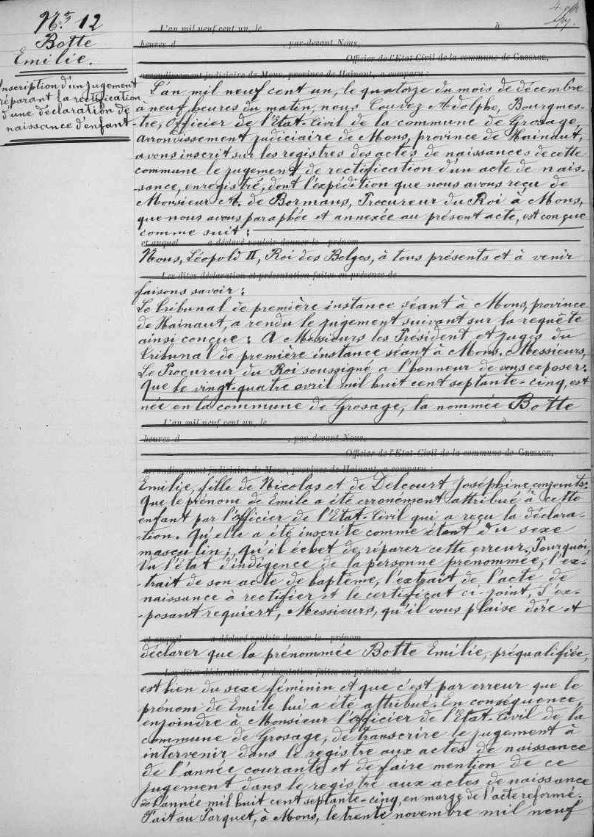 N° 12
Botte
Emilie.
Inscription d'un jugement
réparant la rectification
d'une déclaration de
naissance d'enfant
L'an mil neuf cent un, le
heures d , par-devant Nous,
Officier de l'Etat Civil de la commune de Grosage,
arrondissement judiciaire de Mons, province de Hainaut, a comparu :
L'an mil neuf cent un, le quatorze du mois de décembre
à neuf heures du matin, nous Adolphe, Bourgmes-
tre, Officier de l'Etat-Civil de la commune de Grosage,
arrondissement judiciaire de Mons, province de Hainaut,
avons inscrit sur les registres des actes de naissances de cette
commune le jugement de rectification d'un acte de nais-
sance, enregistré, dont l'expédition que nous avons reçu de
Monsieur A. de Bormans, Procureur du Roi à Mons,
que nous avons paraphée et annexée au présent acte, est conçue
comme suit :
et auquel a déclaré vouloir donner le prénom
Nous, Léopold II, Roi des Belges, à tous présents et à venir
Les dites déclaration et présentation faites en présence de
faisons savoir :
Le tribunal de première instance séant à Mons, province
de Hainaut, a rendu le jugement suivant sur la requête
ainsi conçue : A Messieurs les Président et juges du
tribunal de première instance séant à Mons. Messieurs,
Le Procureur du Roi soussigné a l'honneur de vous exposer :
Que le vingt-quatre avril mil huit cent septante-cinq, est
née en la commune de Grosage, la nommée Botte
L'an mil neuf cent un, le à
heures d , par-devant Nous,
Officier de l'Etat Civil de la commune de Grosage,
arrondissement judiciaire de Mons, province de Hainaut, a comparu :
Emilie, fille de Nicolas et de Delcourt Joséphine conjoints.
Que le prénom de Emile a été erronément attribué à cette
enfant par l'Officier de l'Etat-Civil qui a reçu la déclara-
tion. Qu'elle a été inscrite comme étant du sexe
masculin ; qu'il échet de réparer cette erreur. Pourquoi,
Vu l'état d'indigence de la personne prénommée, l'ex-
trait de son acte de baptême, l'extrait de l'acte de
naissance à rectifier et le certificat ci-joint, l'ex-
posant requiert, Messieurs, qu'il vous plaise dire et
et auquel a déclaré vouloir donner le prénom
déclarer que la prénommée Botte Emilie, préqualifiée,
Les dites déclaration et présentation faites en présence de
est bien du sexe féminin et que c'est par erreur que le
prénom de Emile lui a été attribué. En conséquence,
enjoindre à Monsieur l'Officier de l'Etat-Civil de la
commune de Grosage, de transcrire le jugement à
intervenir dans le registre aux actes de naissance
de l'année courante et de faire mention de ce
jugement dans le registre aux actes de naissance
de l'année mil huit cent septante-cinq, en marge de l'acte réformé.
Fait au Parquet, à Mons, le trente novembre mil neuf